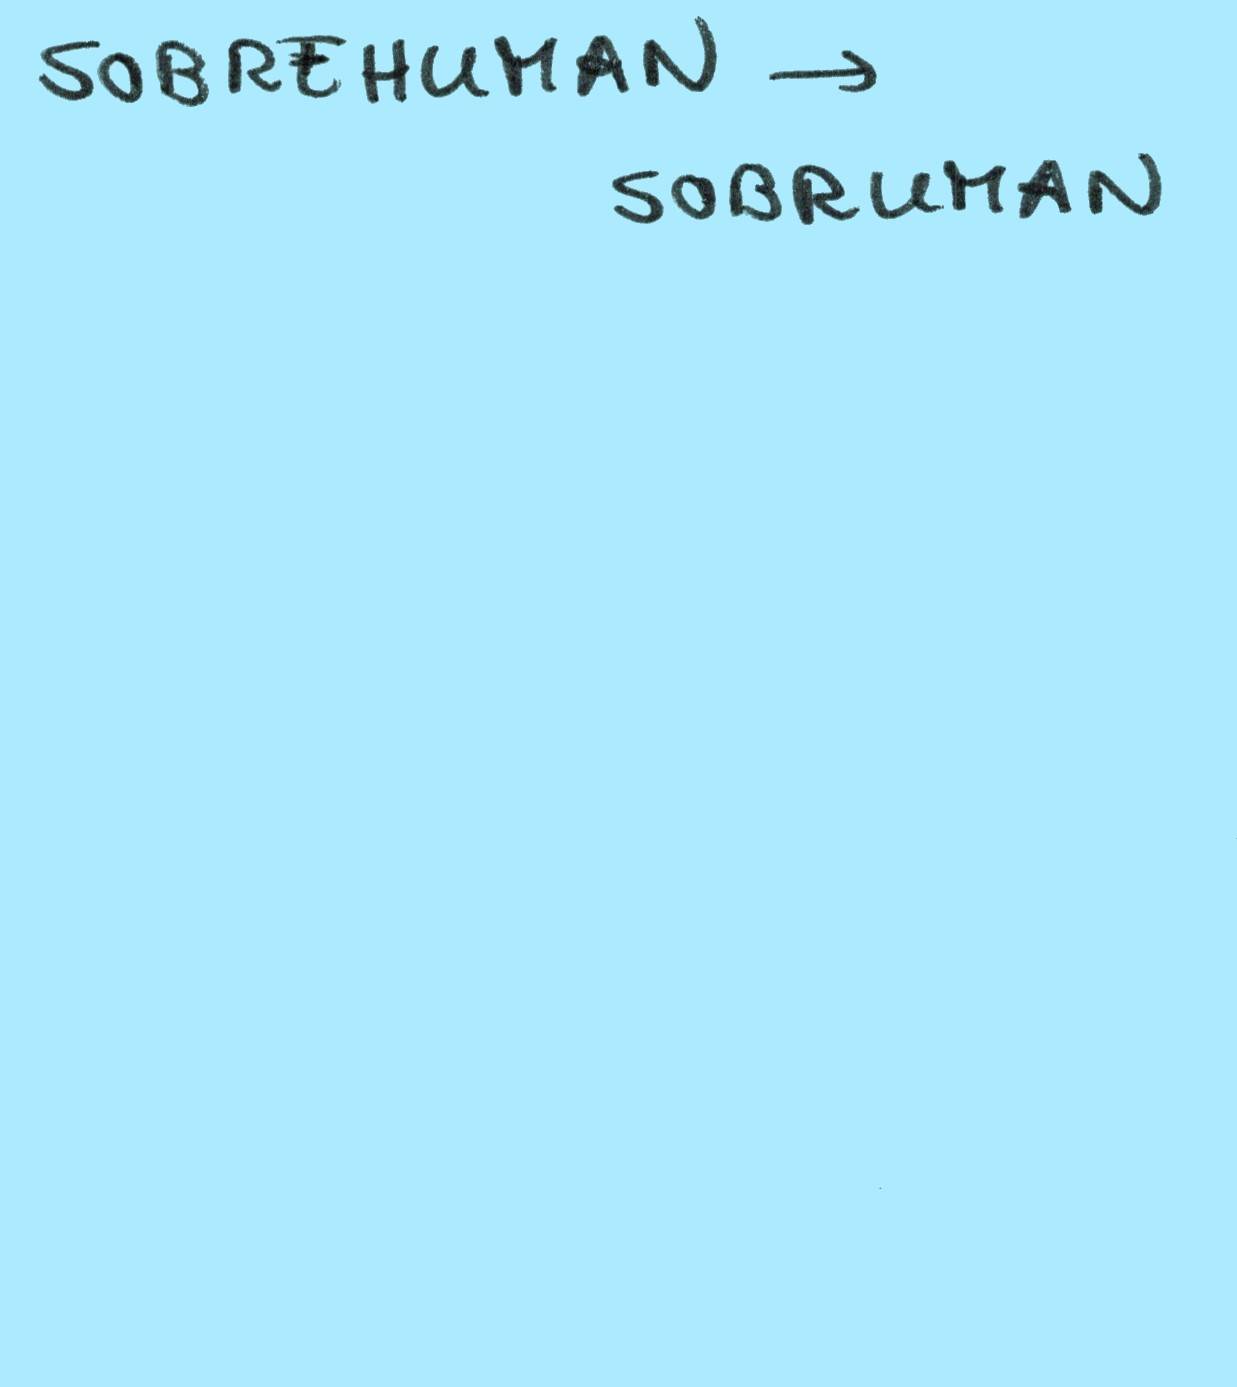 SOBREHUMAN →
SOBRUMAN